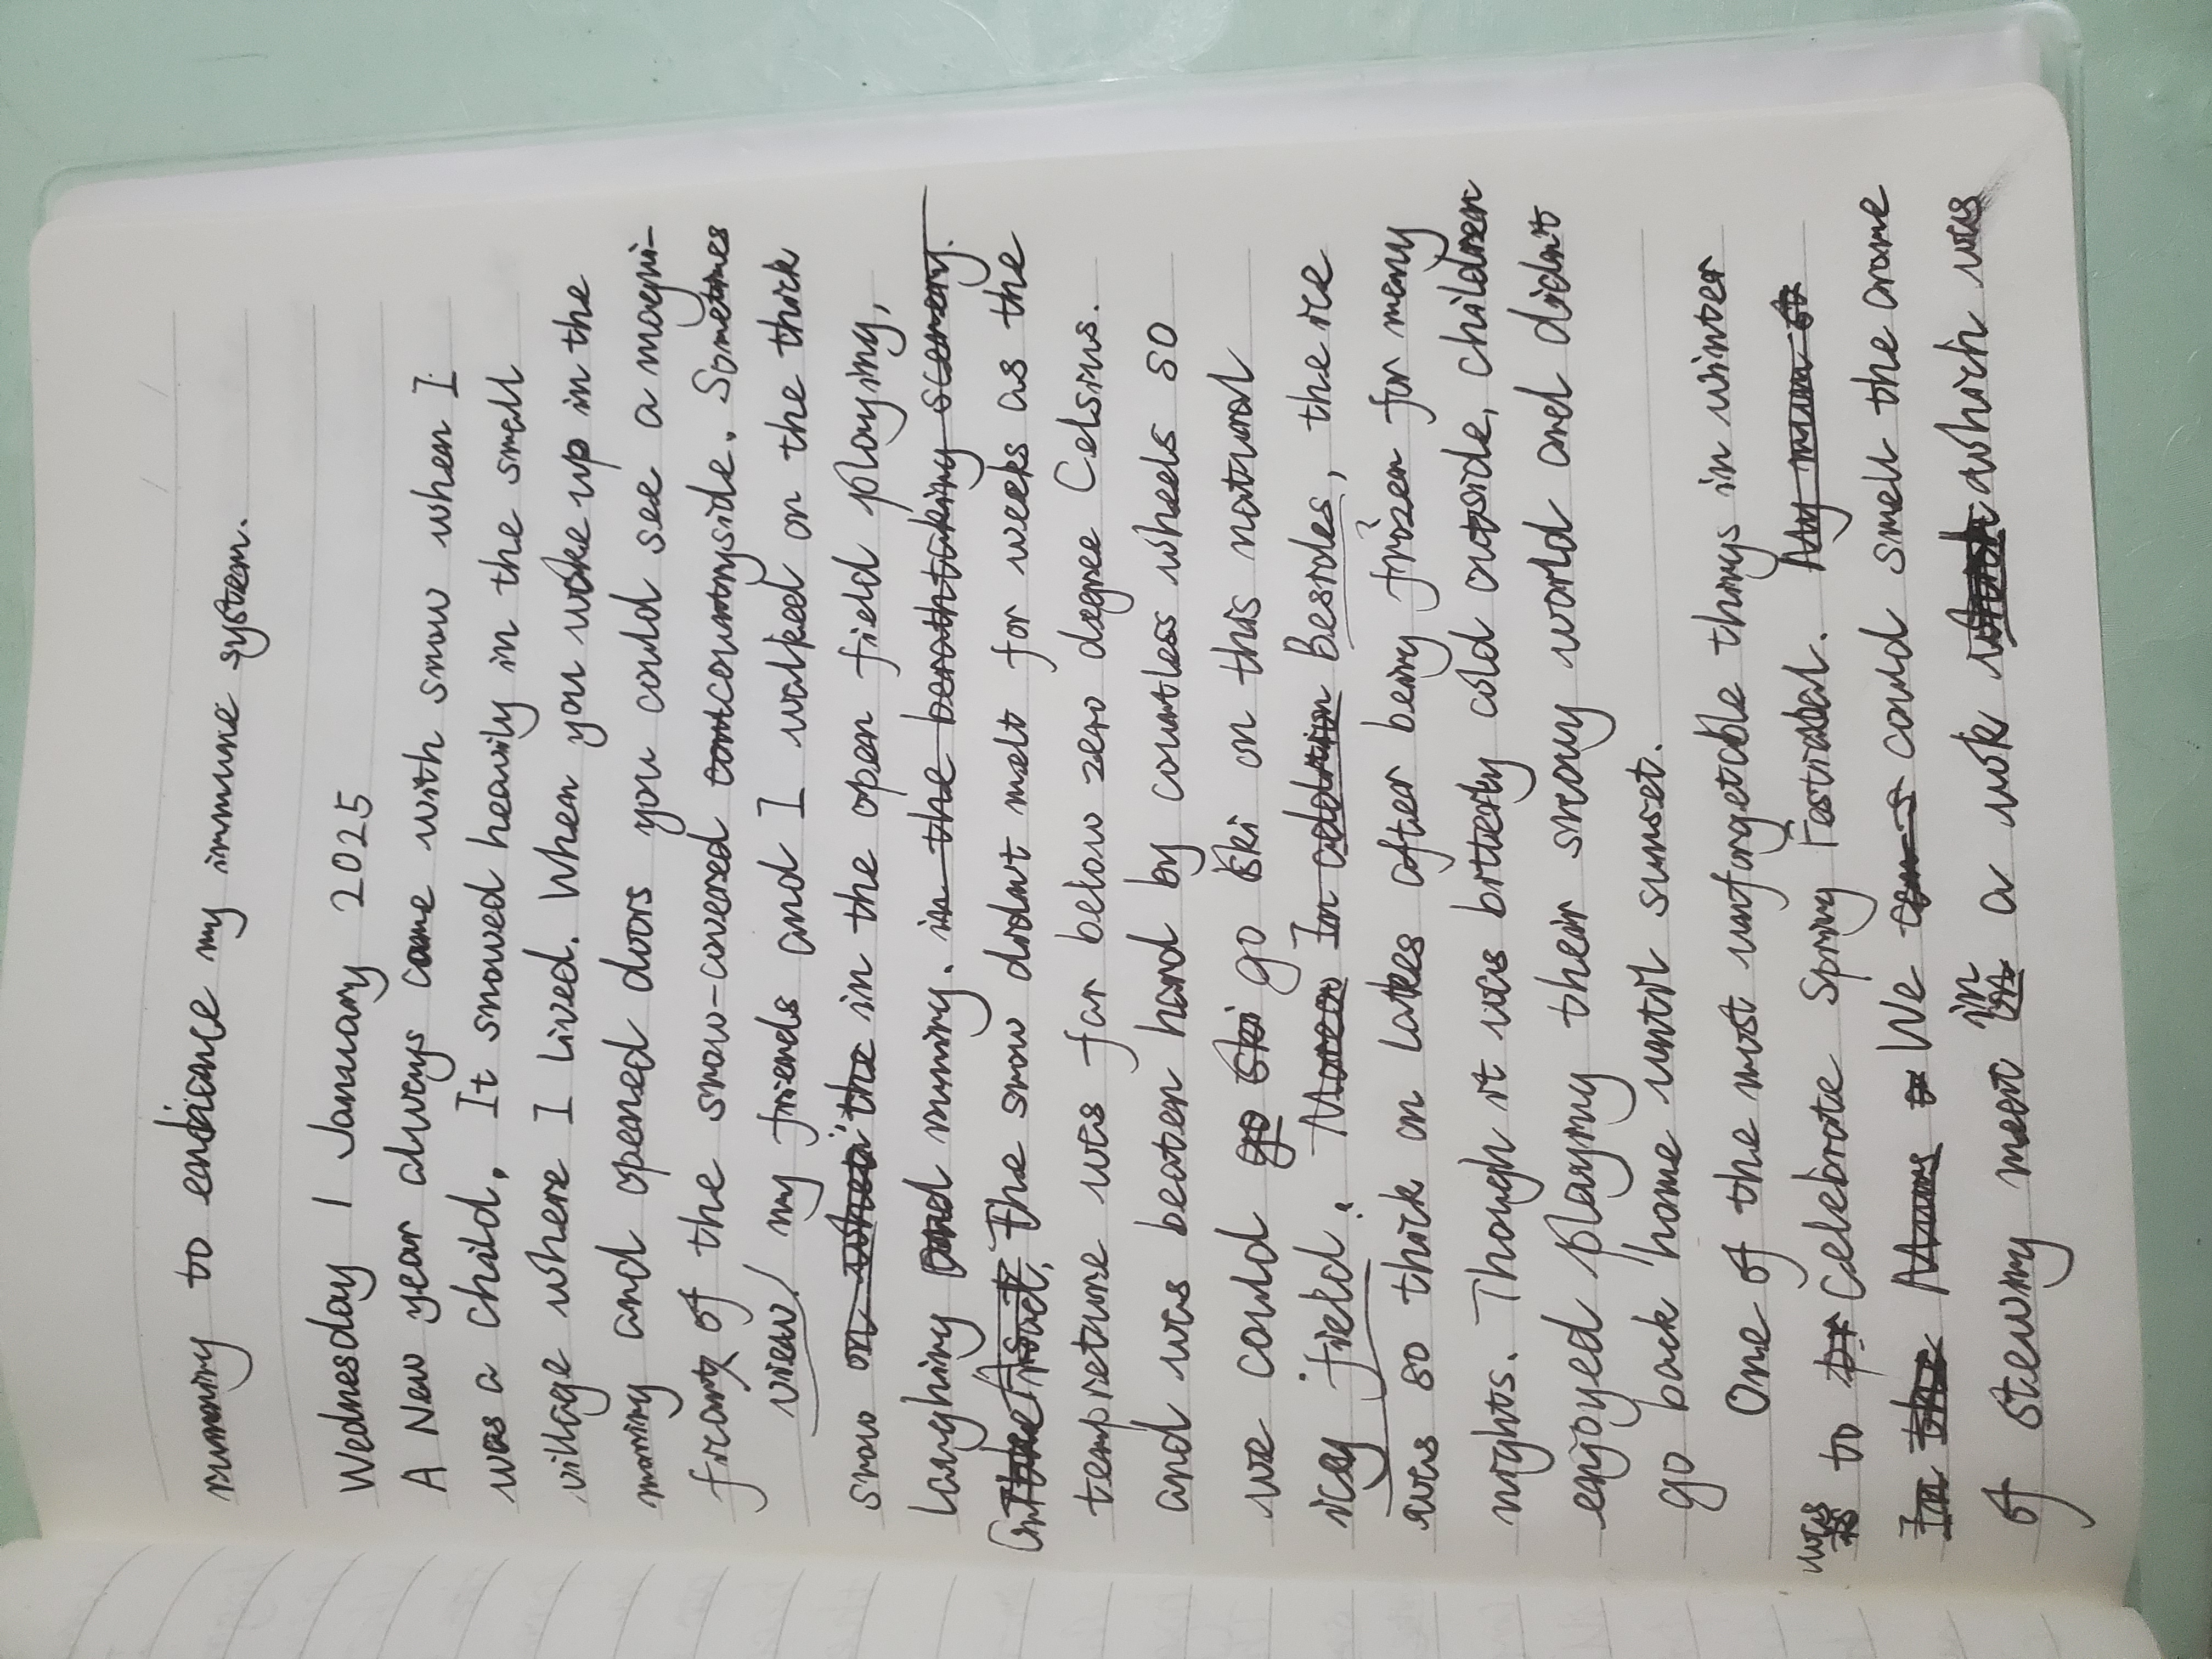 running to my immune system.
Wednesday 1 January 2025
A New year always came with snow when I
was a child. It snowed heavily in the small
village where I lived. When you woke up in the
morning and opened doors you could see a magni-
ficant of the snow-covered countryside. Sometimes
view my friends and I walked on the thick
snow on when the in the open field playing,
laughing and running. in the berathtaking scenery.
The snow didn't melt for weeks as the
tempreture was far below zero degree Celsius.
and was beaten hard by countless wheels so
we could go ski go ski on this natural
icy field. Moreo In addition Besides, the ice
was so thick on lakes after being frozen for many
nights. Though it was bitterly cold outside, children
enjoyed playing their snowy world and didn't
go back home until sunset.
One of the most unforgetable things in winter
was
is to pr celebrate Spring Festival. My mum st
In the Mums We could smell the arome
in
of stewing meat on a wok which which was